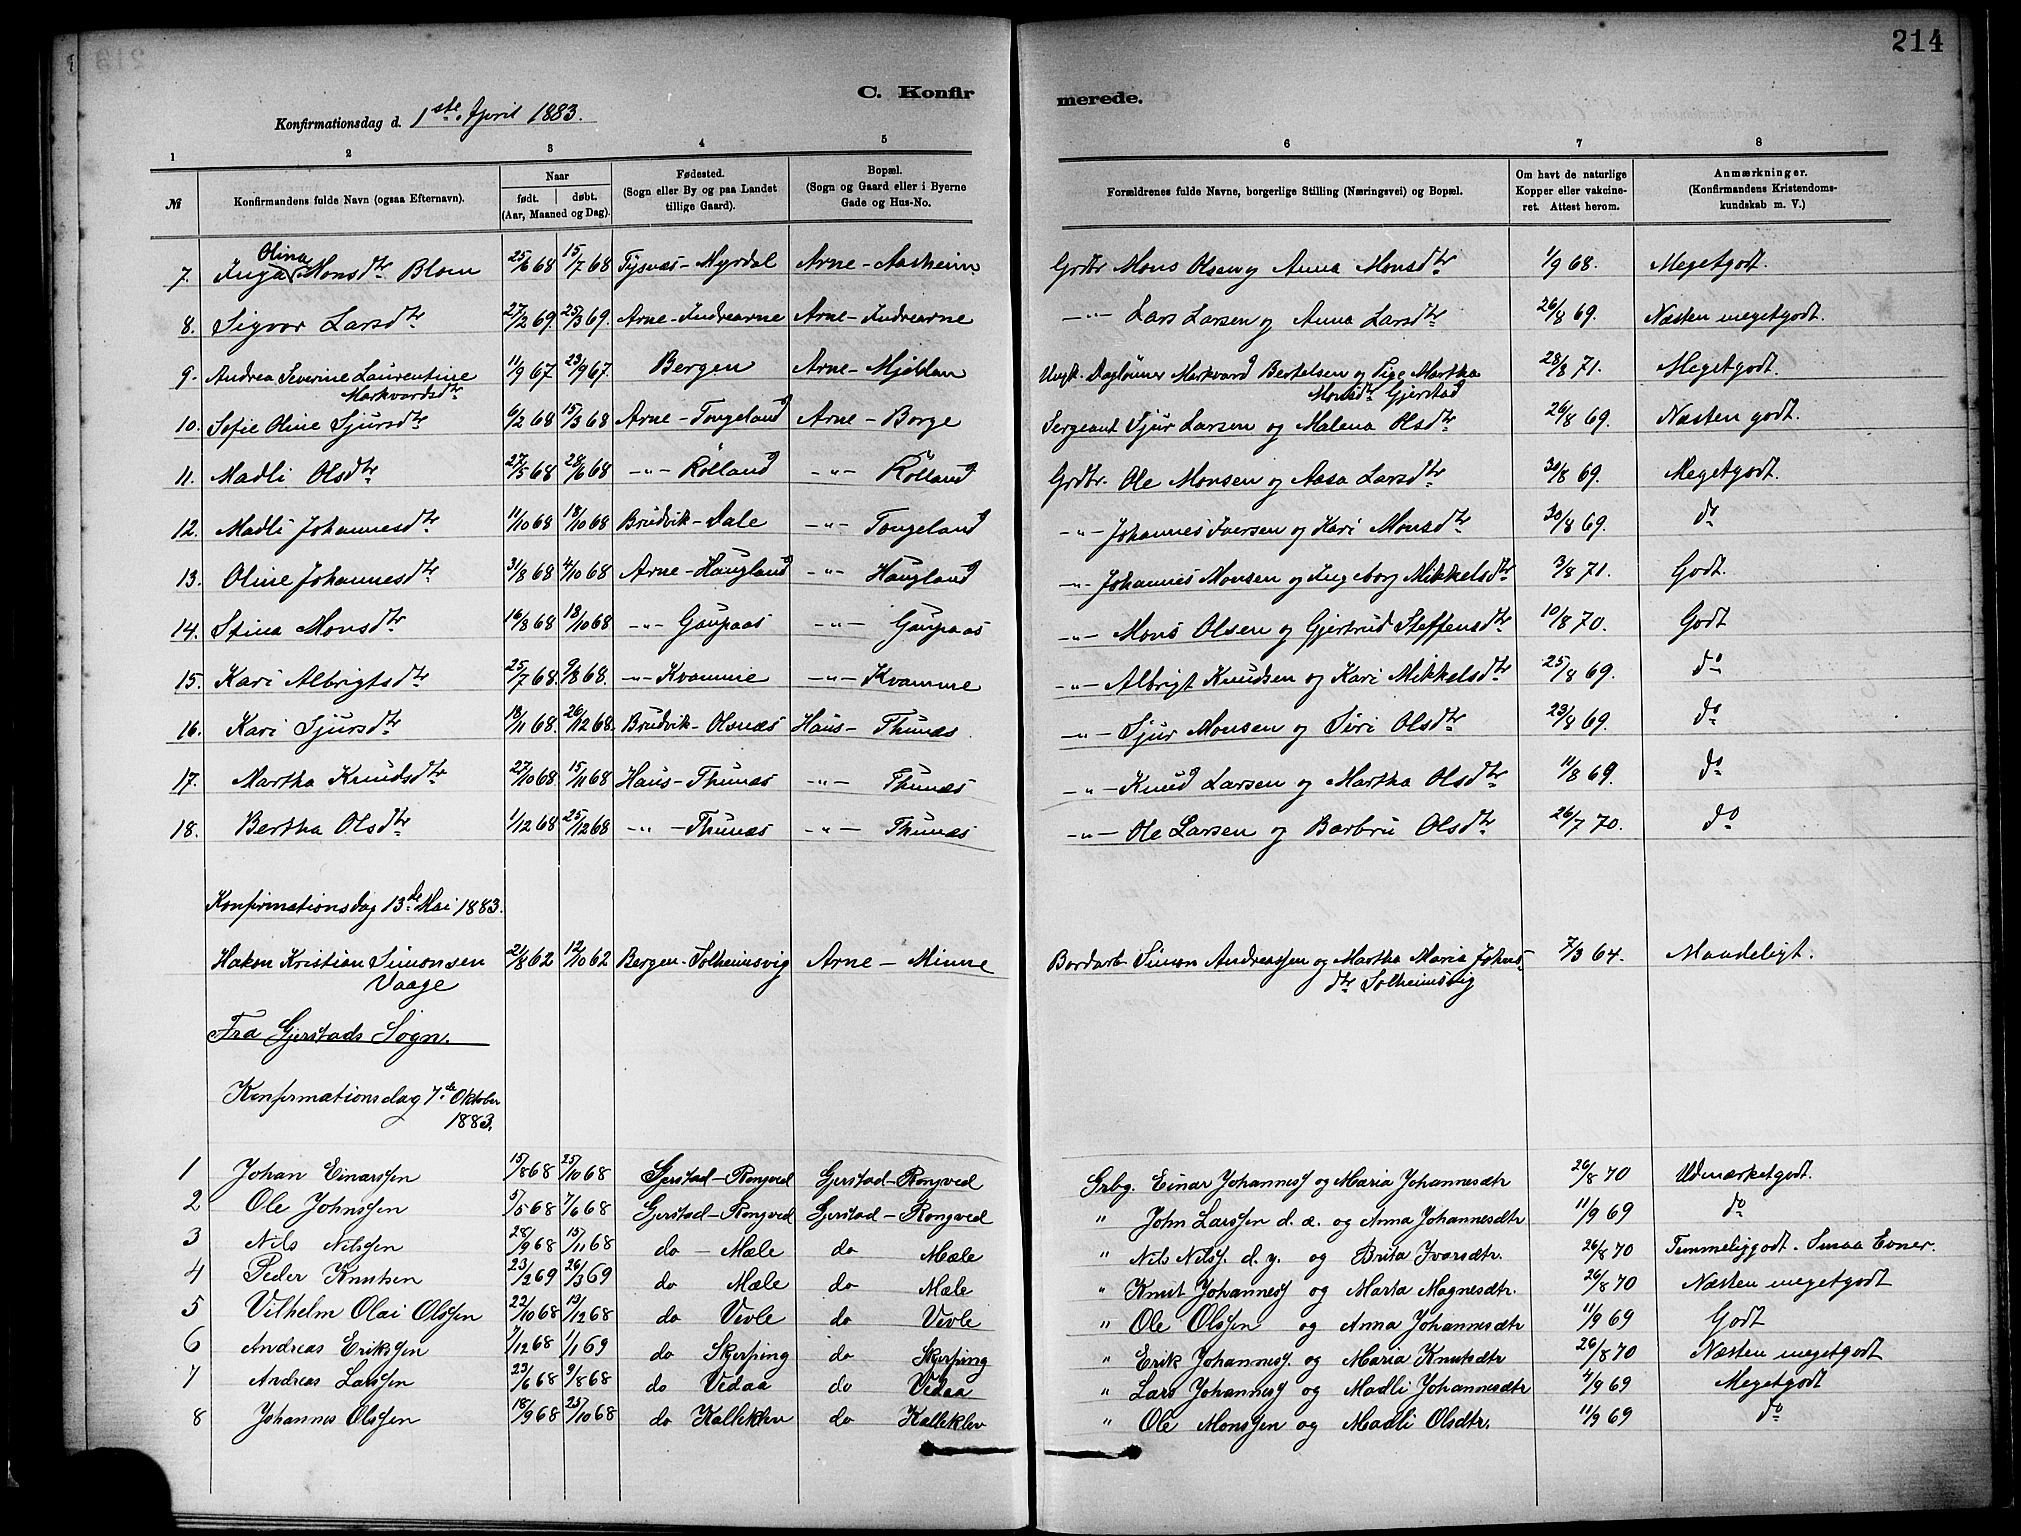 214
C. Konfirmerede.
Konfirmationsdag d. 1ste April 1883.
1 2 3 4 5 6 7 8
№ Konfirmandens fulde Navn (ogsaa Efternavn). Naar født. døbt. (Aar, Maaned og Dag). Fødested. (Sogn eller By og paa Landet tillige Gaard). Bopæl. (Sogn og Gaard eller i Byerne Gade og Hus-No. Forældrenes fulde Navne, borgerlige Stilling (Næringsvei) og Bopæl. Om havt de naturlige Kopper eller vakcineret. Attest herom. Anmærkninger. (Konfirmandens Kristendomskundskab m. V.)
7. Inga Olina Monsdtr Blom 25/6 68 15/7 68 Tysnæs - Myrdal Arne - Aasheim Grdbr Mons Olsen og Anna Monsdtr 1/9 68. Megetgodt.
8. Sigvor Larsdtr 27/2 69. 25/3 69. Arne - Indrearne Arne - Indrearne -"- Lars Larsen og Anna Larsdtr 26/8 69. Næsten megetgodt.
9. Andrea Severine Laurentine Markvardsdtr 11/9 67 23/9 67. Bergen Arne - Mjeldan Ungk. Daglønner Markvard Bertelsen og Pige Martha Monsdtr Gjerstad 28/8 71. Megetgodt.
10. Sofie Oline Sjursdtr 6/2 68 15/3 68 Arne - Tongeland Arne - Borge Sergeant Sjur Larsen og Malena Olsdtr 26/8 69. Næsten godt.
11. Madli Olsdtr 27/5 68 28/6 68 -"- Rölland -"- Rölland Grdbr. Ole Monsen og Aasa Larsdtr 30/8 69. Megetgodt.
12. Madli Johannesdtr 11/10 68 18/10 68 Brudvik - Dale -"- Tongeland -"- Johannes Iversen og Kari Monsdtr 30/8 69. do
13. Oline Johannesdtr 31/8 68 4/10 68 Arne - Haugland -"- Haugland -"- Johannes Monsen og Ingeborg Mikkelsdtr 3/8 71. Godt.
14. Stina Monsdtr 16/8 68 18/10 68 -"- Gaupaas -"- Gaupaas -"- Mons Olsen og Gjertrud Steffensdtr 10/8 70. Godt
15. Kari Albrigtsdtr 25/7 68. 9/8 68. -"- Kvamme -"- Kvamme -"- Albrigt Knudsen og Kari Mikkelsdtr 25/8 69. do
16. Kari Sjursdtr 18/11 68. 26/12 68. Brudvik - Olsnæs Haus - Thunæs. -"- Sjur Monsen og Siri Olsdtr 23/8 69. do
17. Martha Knudsdtr 27/10 68. 15/11 68 Haus - Thunæs -"- Thunæs -"- Knud Larsen og Martha Olsdtr 11/8 69. do
18. Bertha Olsdtr 1/12 68 25/12 68 -"- Thunæs -"- Thunæs -"- Ole Larsen og Barbru Olsdtr 26/7 70. do
Konfirmationsdag 13de Mai 1883.
Hakon Kristian Simonsen Vaage 21/8 62 12/10 62 Bergen - Solheimsvig Arne - Minne Bordarb Simon Andreassen og Martha Maria Johnsdtr Solheimsvig 7/3 64. Maadeligt.
Fra Gjerstads Sogn.
Konfirmationsdag 7de Oktober 1883.
1 Johan Einarssen 15/8 68 25/10 68 Gjerstad - Rongved Gjerstad - Rongved Grbg. Einar Johanness og Maria Johannesdtr 26/8 70 Udmærketgodt.
2 Ole Johnssen 5/5 68 7/6 68 Gjerstad - Rongved Gjerstad - Rongved " John Larssen d. æ. og Anna Johannesdtr 11/9 69 do
3 Nils Nilssen 28/9 68 15/11 68 do - Mæle do Mæle " Nils Nilss. d. y. og Brita Ivarsdtr. 26/8 70 Temmeliggodt. Smaa Evner.
4 Peder Knutsen 23/2 69 26/3 69 do Mæle do Mæle " Knut Johanness og Marta Magnesdtr. 26/8 70 Næsten megetgodt
5 Vilhelm Olai Olssen 22/10 68 13/12 68 do Vevle do Vevle " Ole Olssen og Anna Johannesdtr 11/9 69 Godt
6 Andreas Erikssen 7/12 68 1/1 69 do Skjerping do Skjerping " Erik Johanness. og Maria Knutsdtr 26/8 70 Næsten megetgodt
7 Andreas Larssen 23/6 68 9/8 68 do Vedaa do Vedaa " Lars Johanness og Madli Johannesdtr 4/9 69 Megetgodt
8 Johannes Olssen 18/9 68 25/10 68 do Kalleklev do Kalleklev " Ole Monssen og Madli Olsdtr. 11/9 69 do